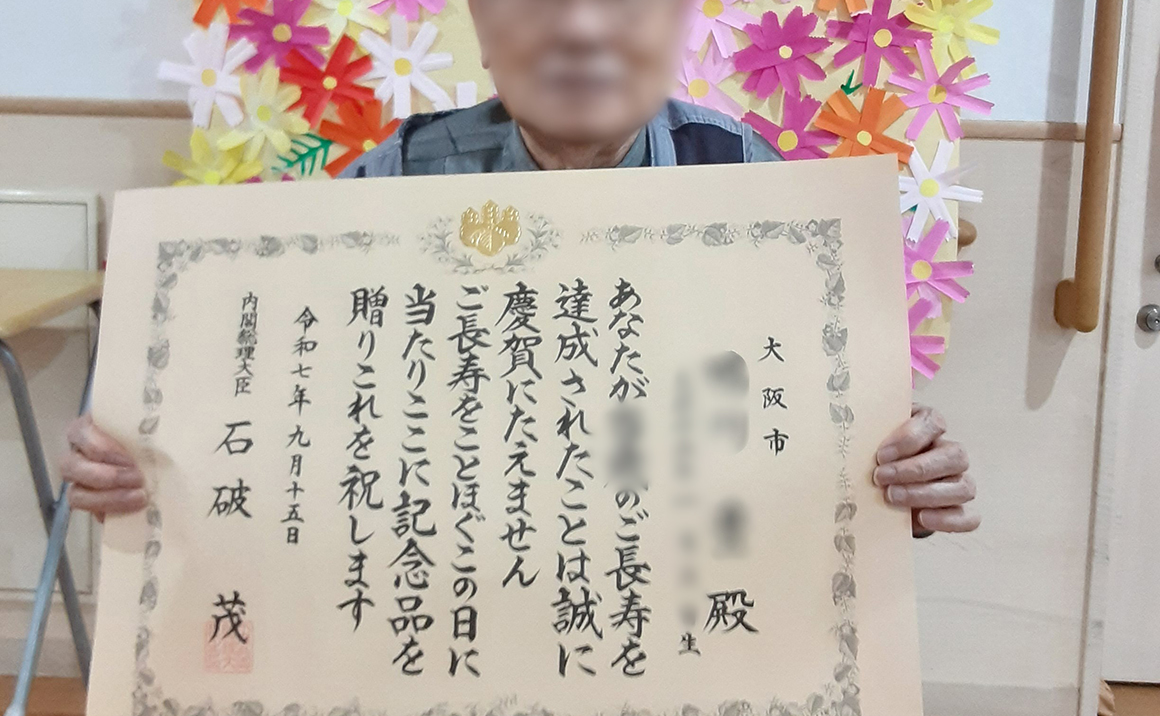 大阪市
殿
生
あなたが
のご長寿を
達成されたことは誠に
慶賀にたえません
ご長寿をことほぐこの日に
当たりここに記念品を
贈りこれを祝します
令和七年九月十五日
内閣総理大臣 石破 茂